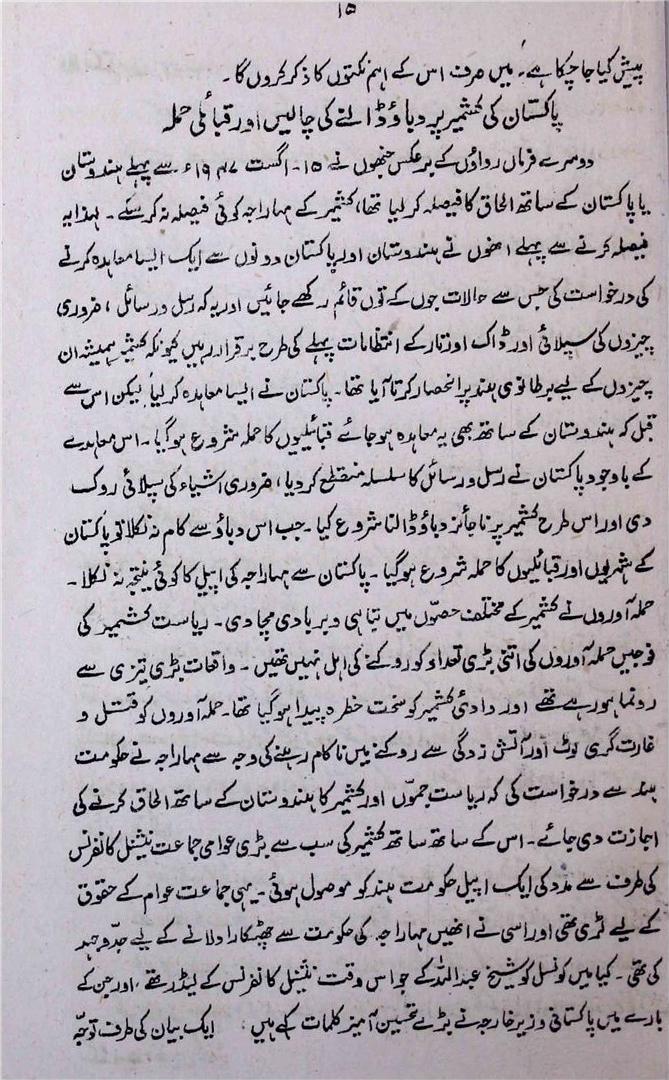 ۱۵
پیش کیا جا چکا ہے۔ میں صرف اس کے اہم نکتوں کا ذکر کروں گا۔
پاکستان کی کشمیر پر دباؤ ڈالنے کی چالیں اور قبائلی حملہ
دوسرے فرماں رواؤں کے برعکس جنھوں نے ۱۵۔ اگست ۱۹۴۷ء۔ سے پہلے ہندوستان
یا پاکستان کے ساتھ الحاق کا فیصلہ کر لیا تھا، کشمیر کے مہاراجہ کوئی فیصلہ نہ کر سکے۔ لہذا یہ
فیصلہ کرنے سے پہلے انھوں نے ہندوستان اور پاکستان دونوں سے ایک ایسا معاہدہ کرنے
کی درخواست کی جس سے حالات جوں کے توں قائم رکھے جائیں اور یہ کہ رسل و رسائل، ضروری
چیزوں کی سپلائی اور ڈاک اور تار کے انتظامات پہلے کی طرح برقرار رہیں کیونکہ کشمیر ہمیشہ ان
چیزوں کے لیے برطانوی ہند پر انحصار کرتا آیا تھا۔ پاکستان نے ایسا معاہدہ کر لیا، لیکن اس سے
قبل کہ ہندوستان کے ساتھ بھی یہ معاہدہ ہو جائے قبائلیوں کا حملہ شروع ہو گیا۔ اس معاہدے
کے باوجود پاکستان نے رسل و رسائل کا سلسلہ منقطع کر دیا، ضروری اشیاء کی سپلائی روک
دی اور اس طرح کشمیر پر ناجائز دباؤ ڈالنا شروع کیا۔ جب اس دباؤ سے کام نہ نکلا تو پاکستان
کے شہریوں اور قبائلیوں کا حملہ شروع ہو گیا۔ پاکستان سے مہاراجہ کی اپیل کا کوئی نتیجہ نہ نکلا۔
حملہ آوروں نے کشمیر کے مختلف حصّوں میں تباہی و بربادی مچا دی۔ ریاست کشمیر کی
فوجیں حملہ آوروں کی اتنی بڑی تعداد کو روکنے کی اہل نہیں تھیں۔ واقعات بڑی تیزی سے
رونما ہو رہے تھے اور وادئ کشمیر کو سخت خطرہ پیدا ہو گیا تھا۔ حملہ آوروں کو قتل و
غارت گری لوٹ اور آتش زدگی سے روکنے میں ناکام رہنے کی وجہ سے مہاراجہ نے حکومت
ہند سے درخواست کی کہ ریاست جموّں اور کشمیر کا ہندوستان کے ساتھ الحاق کرنے کی
اجازت دی جائے۔ اس کے ساتھ ساتھ کشمیر کی سب سے بڑی عوامی جماعت نیشنل کانفرنس
کی طرف سے مدد کی ایک اپیل حکومت ہند کو موصول ہوئی۔ یہی جماعت عوام کے حقوق
کے لیے لڑی تھی اور اسی نے انھیں مہاراجہ کی حکومت سے چھٹکارا دلانے کے لیے جدّوجہد
کی تھی۔ کیا میں کونسل کو شیخ عبداللہ کے جو اس وقت نیشنل کانفرنس کے لیڈر تھے، اور جن کے
بارے میں پاکستانی وزیر خارجہ نے بڑے تحسین آمیز کلمات کہے ہیں ایک بیان کی طرف توجّہ